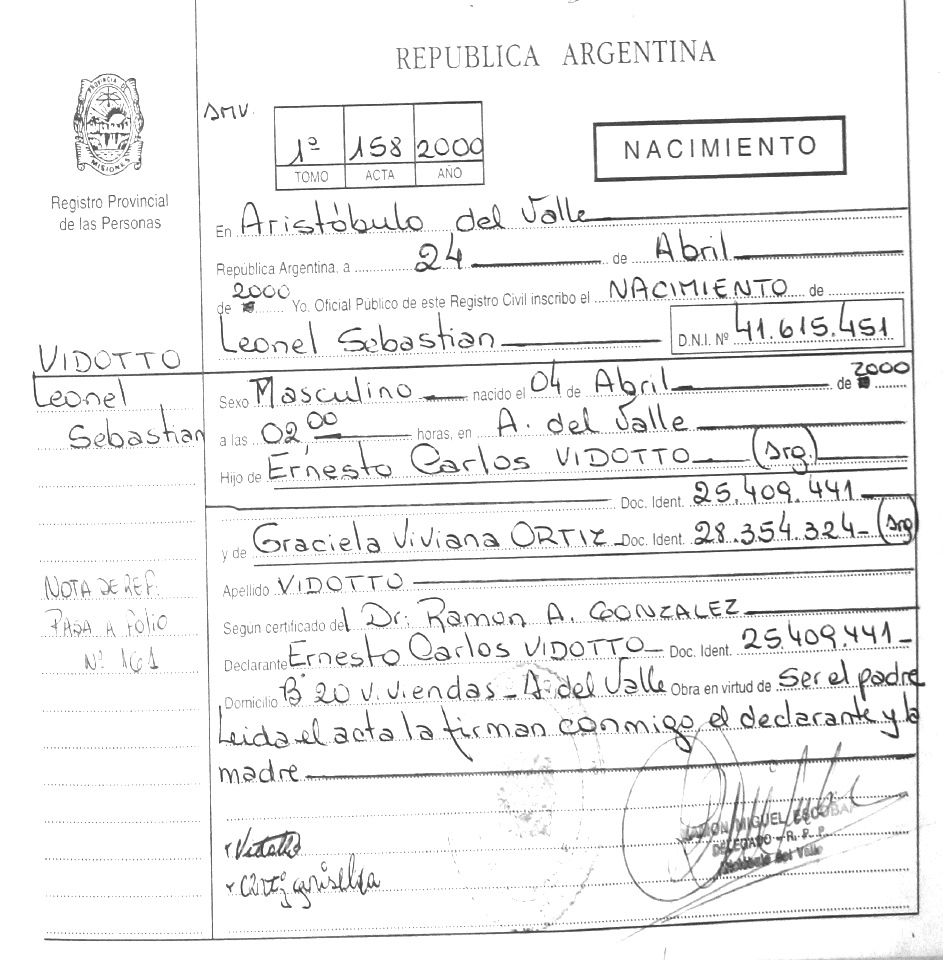 REPUBLICA ARGENTINA
PROVINCIA DE
MISIONES
Registro Provincial
de las Personas
1º 158 2000
TOMO ACTA AÑO
NACIMIENTO
En Aristóbulo del Valle
República Argentina, a 24 de Abril
de 2000 Yo. Oficial Público de este Registro Civil inscribo el NACIMIENTO de
Leonel Sebastian D.N.I. Nº 41.615.451
VIDOTTO
Leonel
Sebastian
Sexo Masculino nacido el 04 de Abril de 2000
a las 02 00 horas, en A. del Valle
Hijo de Ernesto Carlos VIDOTTO (Arg.)
Doc. Ident. 25.409.441
y de Graciela Viviana ORTIZ Doc. Ident. 28.354.324 (Arg
Apellido VIDOTTO
NOTA DE REF:
PASA A FOLIO
Nº 161
Segun certificado del Dr: Ramon A. GONZALEZ
Declarante Ernesto Carlos VIDOTTO Doc. Ident. 25.409.441
Domicilio Bº 20 Viviendas - A. del Valle Obra en virtud de ser el padre
Leida el acta la firman conmigo el declarante y la
madre
RAMON MIGUEL ESCOBAR
DELEGADO - R. P. P.
Aristóbulo del Valle